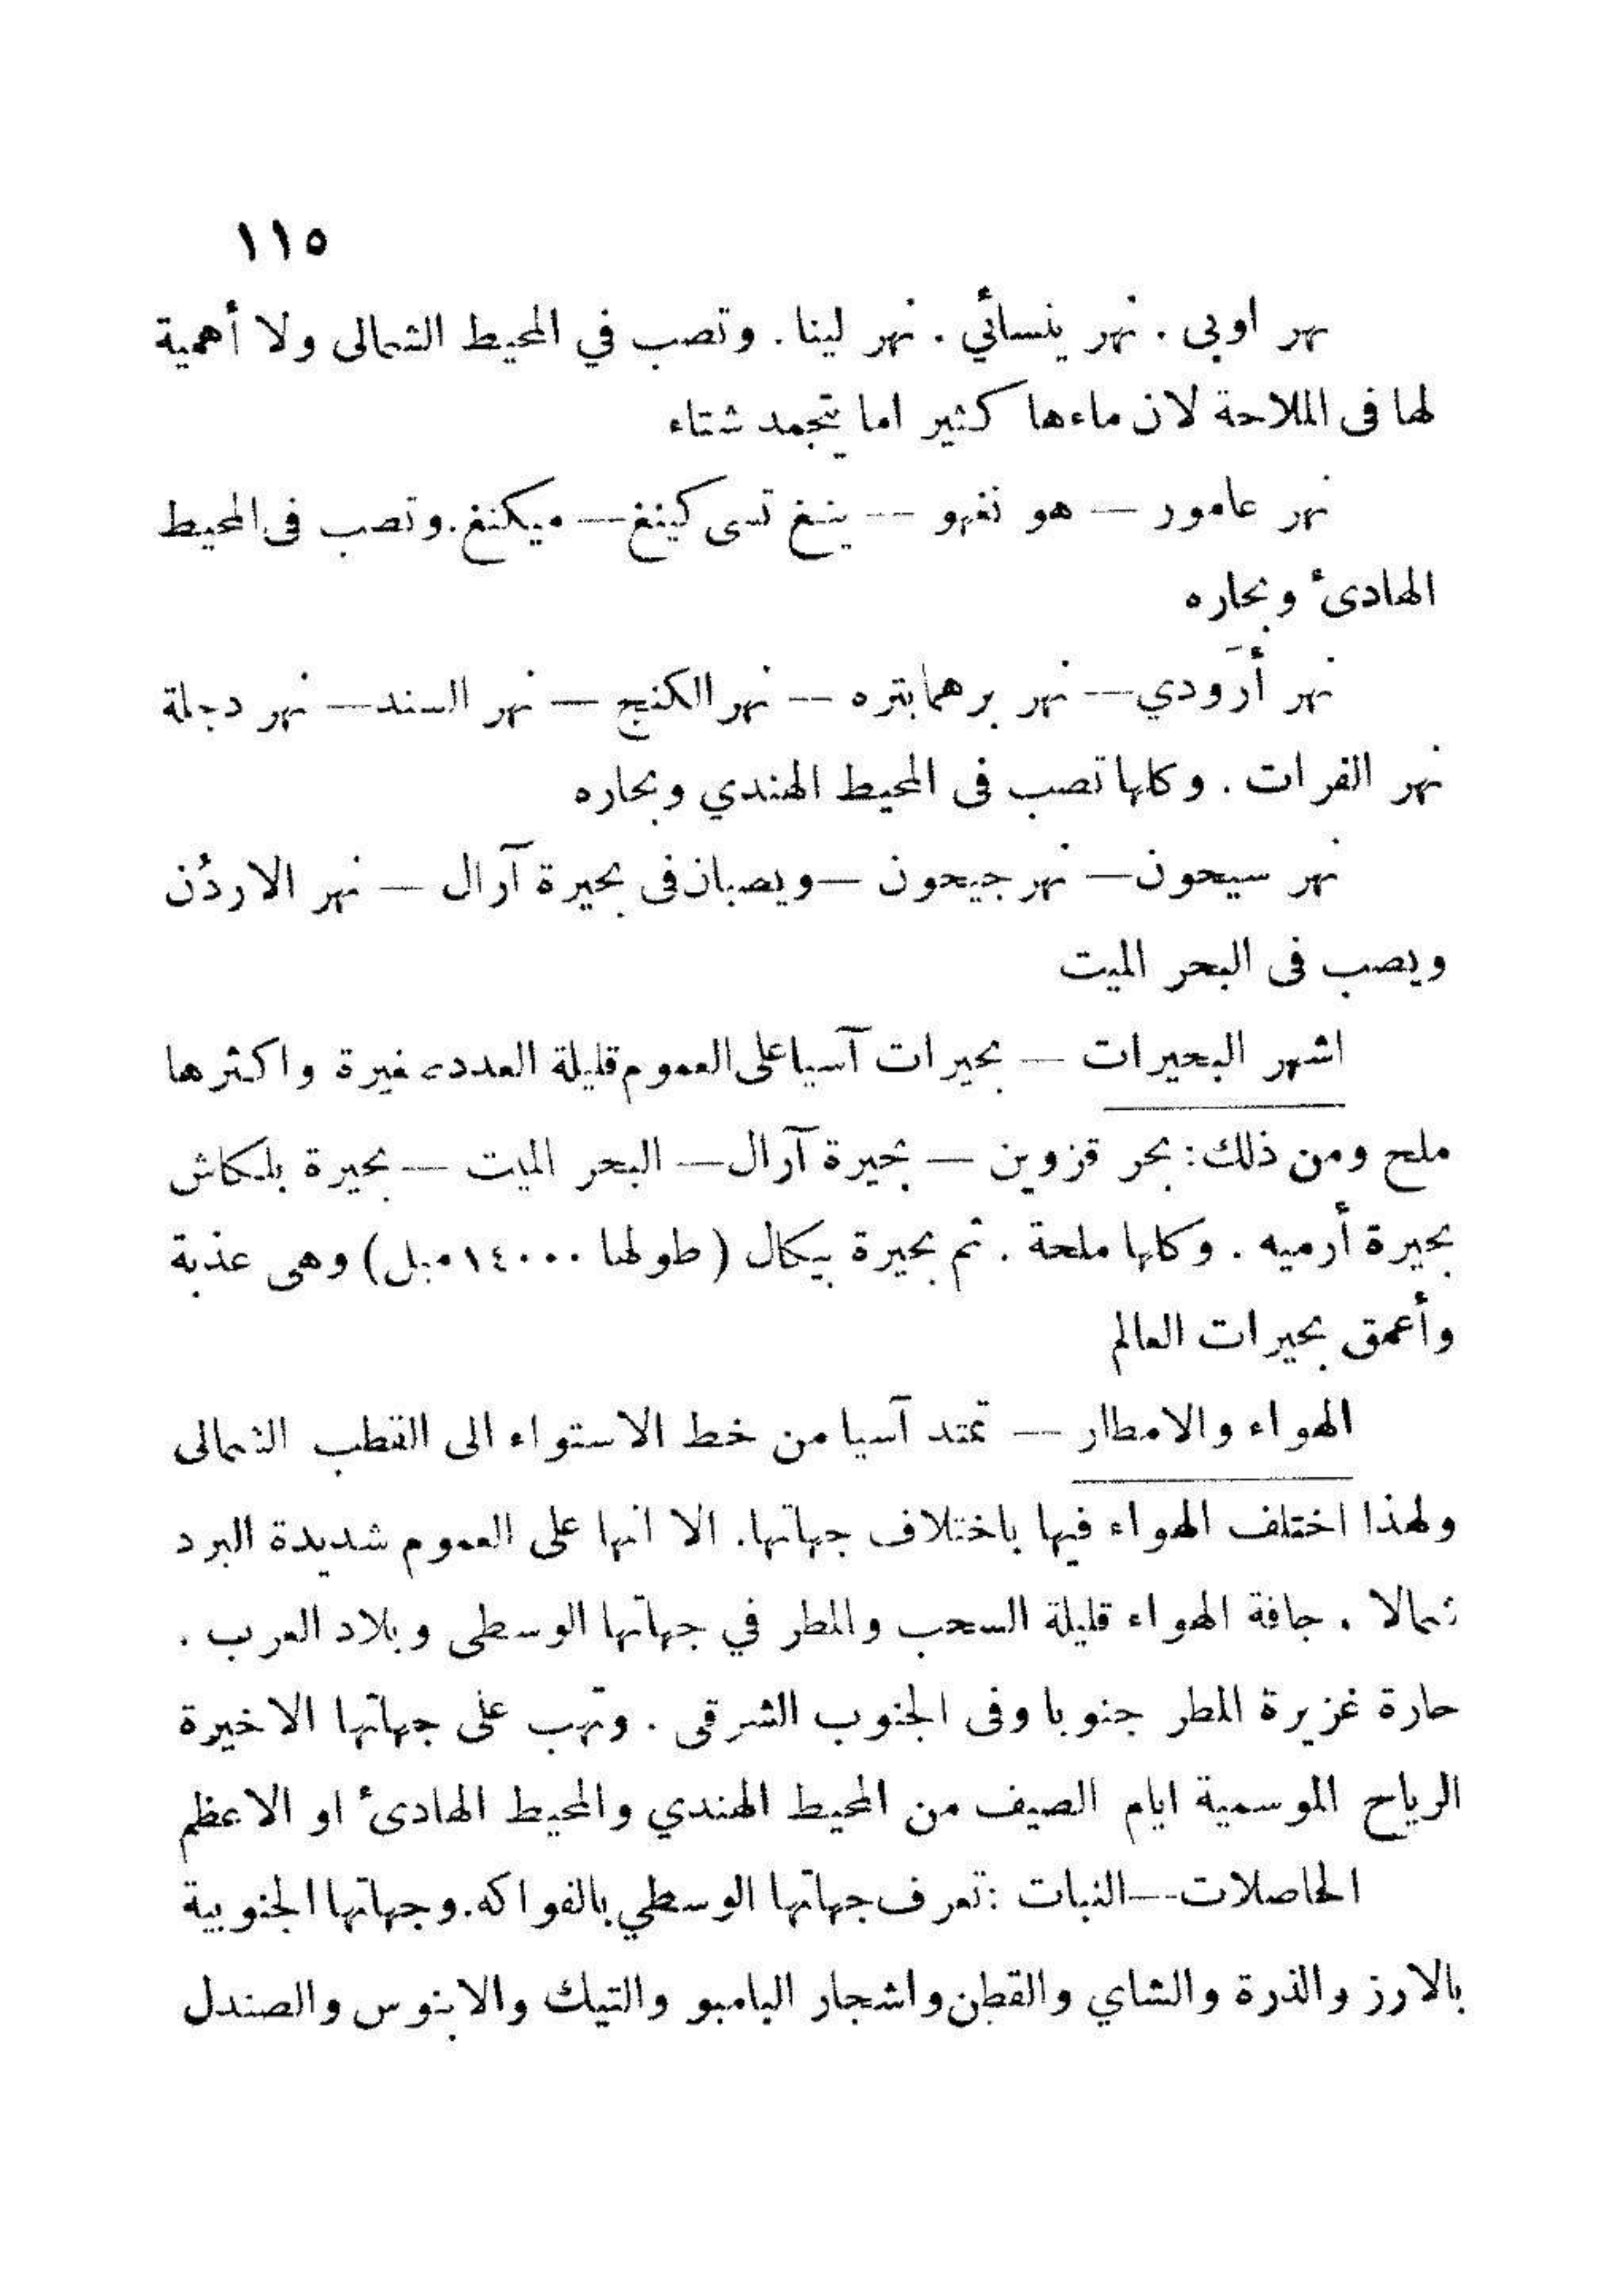 ١١٥
نهر اوبى . نهر ينسائي . نهر لينا . وتصب في المحيط الشمالى ولا أهمية
لها فى الملاحة لان ماءها كثير اما يتجمد شتاء
نهر عامور — هو نغهو — ينغ تسى كينغ — ميكنغ . وتصب فى المحيط
الهادىء وبحاره
نهر أرَودي — نهر برهمابتره — نهر الكنج — نهر السند — نهر دجلة
نهر الفرات . وكلها تصب فى المحيط الهندي وبحاره
نهر سيحون — نهر جيحون — ويصبان فى بحيرة آرال — نهر الاردُن
ويصب فى البحر الميت
اشهر البحيرات — بحيرات آسيا على العموم قليلة العدد صغيرة واكثرها
ملح ومن ذلك : بحر قزوين — بحيرة آرال — البحر الميت — بحيرة بلكاش
بحيرة أرميه . وكلها ملحة . ثم بحيرة بيكال ( طولها ١٤٠٠٠ ميل ) وهى عذبة
وأعمق بحيرات العالم
الهواء والامطار — تمتد آسيا من خط الاستواء الى القطب الشمالى
ولهذا اختلف الهواء فيها باختلاف جهاتها . الا انها على العموم شديدة البرد
شمالا . جافة الهواء قليلة السحب والمطر في جهاتها الوسطى وبلاد العرب .
حارة غزيرة المطر جنوبا وفى الجنوب الشرقى . وتهب على جهاتها الاخيرة
الرياح الموسمية ايام الصيف من المحيط الهندي والمحيط الهادىء او الاعظم
الحاصلات — النبات : تعرف جهاتها الوسطي بالفواكه . وجهاتها الجنوبية
بالارز والذرة والشاي والقطن واشجار البامبو والتيك والابنوس والصندل